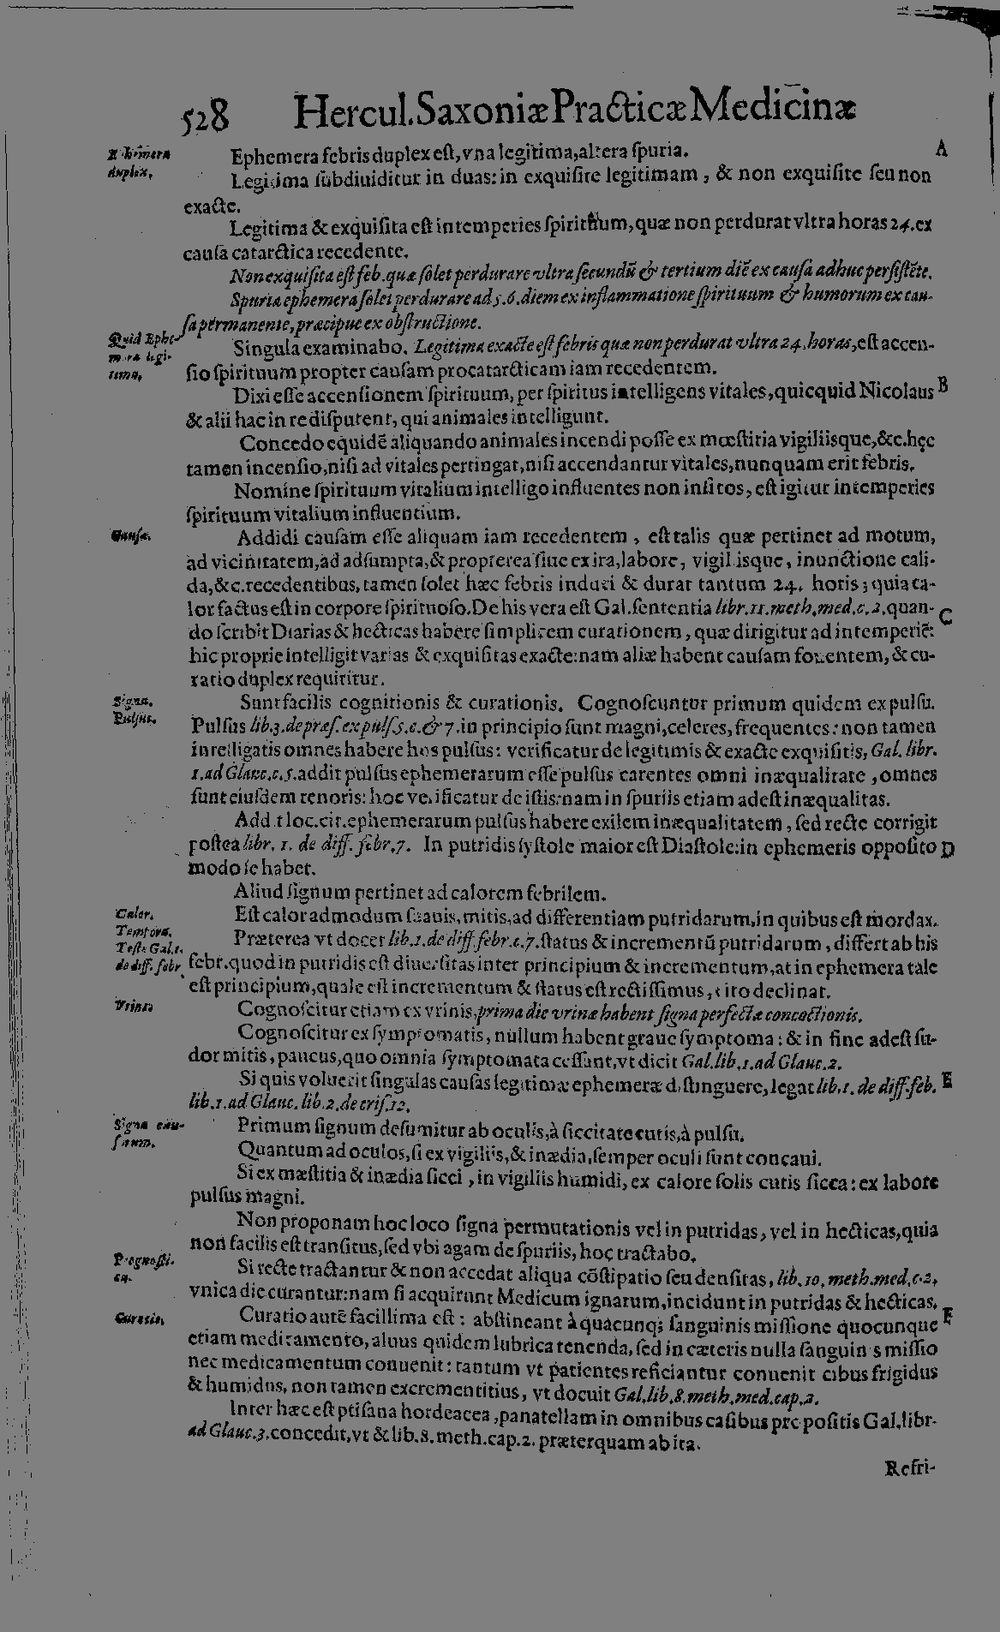 528 Hercul. Saxoniæ Practicæ Medicinæ
Ephemera febris duplex est, vna legitima, altera spuria. A
duplex.
Legitima subdiuiditur in duas: in exquisite legitimam, & non exquisite seu non
exacte.
Legitima & exquisita est intemperies spirituum, quæ non perdurat vltra horas 24. ex
causa catarctica recedente.
Non exquisita est feb. quæ solet perdurare vltra secundũ & tertium diẽ ex causa adhuc persistẽte.
Spuria ephemera solet perdurare ad 5. 6. diem ex inflammatione spirituum & humorum ex cau-
sa permanente, præcipue ex obstructione.
Quid Ephe-
mera legi-
tima.
Singula examinabo. Legitima exacte est febris quæ non perdurat vltra 24. horas, est accen-
sio spirituum propter causam procatarcticam iam recedentem.
Dixi esse accensionem spirituum, per spiritus intelligens vitales, quicquid Nicolaus B
& alii hac in re disputent, qui animales intelligunt.
Concedo equidẽ aliquando animales incendi posse ex mœstitia vigiliisque, &c. hęc
tamen incensio, nisi ad vitales pertingat, nisi accendantur vitales, nunquam erit febris.
Nomine spirituum vitalium intelligo influentes non insitos, est igitur intemperies
spirituum vitalium influentium.
Causa.
Addidi causam esse aliquam iam recedentem, est talis quæ pertinet ad motum,
ad vicinitatem, ad adsumpta, & propterea siue ex ira, labore, vigiliisque, inunctione cali-
da, &c. recedentibus, tamen solet hæc febris induci & durat tantum 24. horis; quia ca-
lor factus est in corpore spirituoso. De his vera est Gal. sententia libr. 11. meth. med. c. 2. quan- C
do scribit Diarias & hecticas habere simplicem curationem, quæ dirigitur ad intemperiẽ:
hic proprie intelligit varias & exquisitas exacte: nam aliæ habent causam fouentem, & cu-
ratio duplex requiritur.
Signa.
Pulsus.
Sunt facilis cognitionis & curationis. Cognoscuntur primum quidem ex pulsu.
Pulsus lib. 3. de præs. ex puls. 5. 6. & 7. in principio sunt magni, celeres, frequentes: non tamen
intelligatis omnes habere hos pulsus: verificatur de legitimis & exacte exquisitis, Gal. libr.
1. ad Glauc. c. 5. addit pulsus ephemerarum esse pulsus carentes omni inæqualitate, omnes
sunt eiusdem tenoris: hoc verificatur de istis: nam in spuriis etiam adest inæqualitas.
Addit loc. cit. ephemerarum pulsus habere exilem inæqualitatem, sed recte corrigit
postea libr. 1. de diff. febr. 7. In putridis systole maior est Diastole: in ephemeris opposito D
modo se habet.
Aliud signum pertinet ad calorem febrilem.
Calor.
Est calor admodum suauis, mitis, ad differentiam putridarum, in quibus est mordax.
Tempora.
Teste Gal. 1.
de diff. febr.
Præterea vt docet lib. 1. de diff. febr. c. 7. status & incrementũ putridarum, differt ab his
febr. quod in putridis est diuersitas inter principium & incrementum, at in ephemera tale
est principium, quale est incrementum & status est rectissimus, cito declinat.
Vrinæ
Cognoscitur etiam ex vrinis, prima die vrinæ habent signa perfectæ concoctionis.
Cognoscitur ex symptomatis, nullum habent graue symptoma: & in fine adest su-
dor mitis, paucus, quo omnia symptomata cessant, vt dicit Gal. lib. 1. ad Glauc. 2.
Si quis voluerit singulas causas legitimæ ephemeræ distinguere, legat lib. 1. de diff. feb. E
lib. 1. ad Glauc. lib. 2. de cris. 12.
Signa cau-
sarum.
Primum signum desumitur ab oculis, à siccitate cutis, à pulsu.
Quantum ad oculos, si ex vigiliis, & inædia, semper oculi sunt concaui.
Si ex mæstitia & inædia sicci, in vigiliis humidi, ex calore solis cutis sicca: ex labore
pulsus magni.
Non proponam hoc loco signa permutationis vel in putridas, vel in hecticas, quia
non facilis est transitus, sed vbi agam de spuriis, hoc tractabo.
Prognosti-
ca.
Si recte tractantur & non accedat aliqua cõstipatio seu densitas, lib. 10. meth. med. c. 2.
vnica die curantur: nam si acquirunt Medicum ignarum, incidunt in putridas & hecticas.
Curatio.
Curatio autẽ facillima est: abstineant à quacunq; sanguinis missione quocunque F
etiam medicamento, aluus quidem lubrica tenenda, sed in cæteris nulla sanguinis missio
nec medicamentum conuenit: tantum vt patientes reficiantur conuenit cibus frigidus
& humidus, non tamen excrementitius, vt docuit Gal. lib. 8. meth. med. cap. 2.
Inter hæc est ptisana hordeacea, panatellam in omnibus casibus prepositis Gal. libr.
ad Glauc. 3. concedit, vt & lib. 8. meth. cap. 2. præterquam ab ita.
Refri-